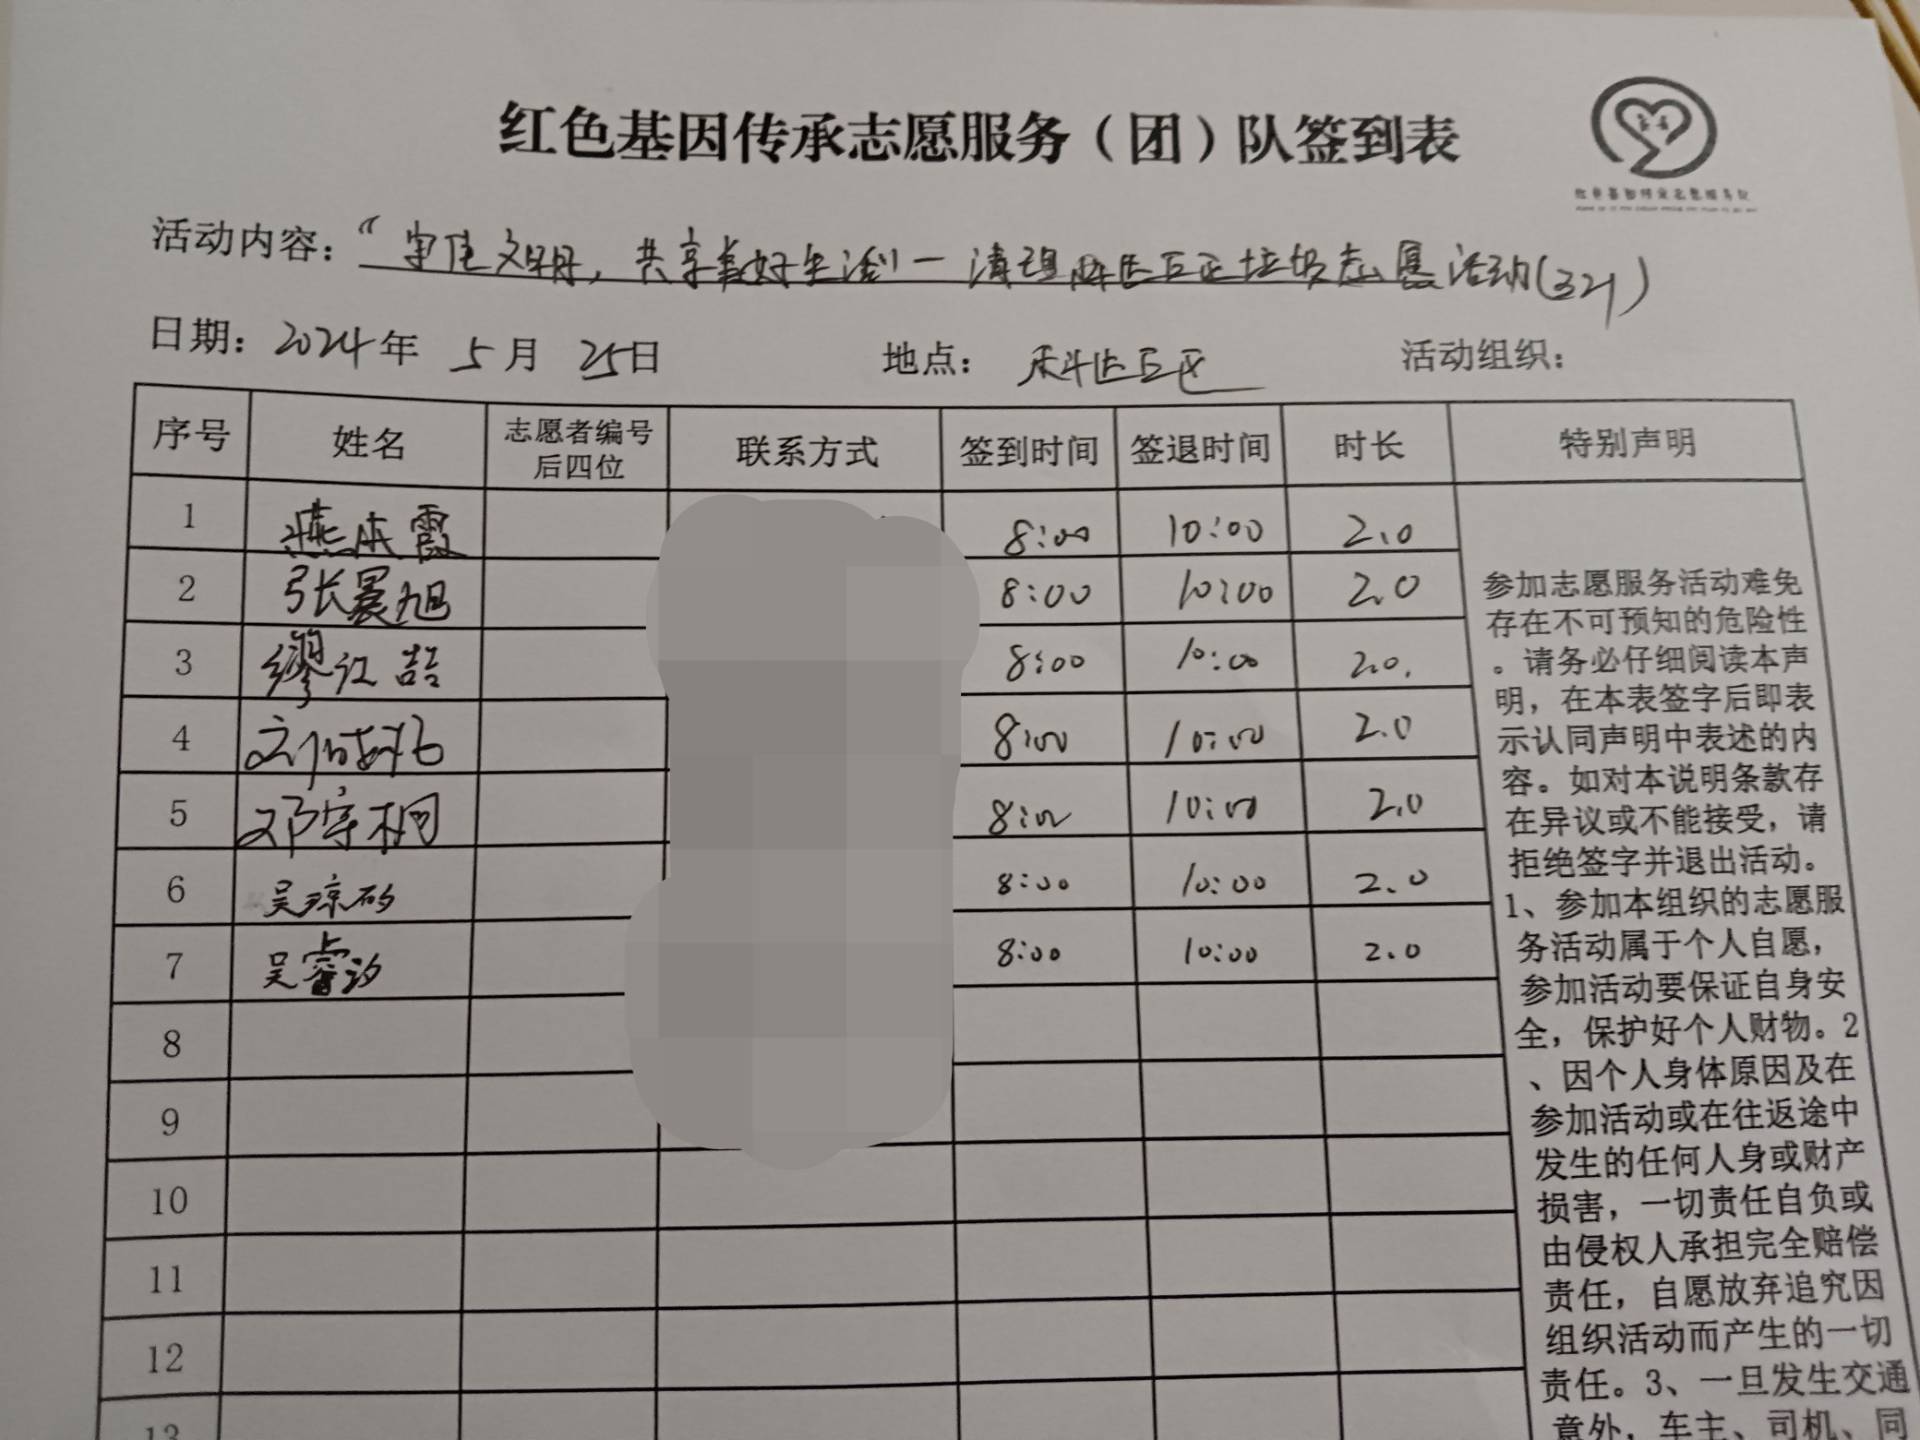 红色基因传承志愿服务（团）队签到表
红色基因传承志愿服务队
活动内容：“ 文明，共享美好生活”一清理 垃圾志愿活动(321)
日期：2024年 5月 25日 地点： 活动组织：
序号 姓名 志愿者编号后四位 联系方式 签到时间 签退时间 时长 特别声明
1 燕 霞 8:00 10:00 2.0
2 张 旭 8:00 10:00 2.0
3 缪江喆 8:00 10:00 2.0.
4 8:00 10:00 2.0
5 邓宇桐 8:00 10:00 2.0
6 吴琼 8:00 10:00 2.0
7 吴睿汐 8:00 10:00 2.0
8
9
10
11
12
13
参加志愿服务活动难免
存在不可预知的危险性
。请务必仔细阅读本声
明，在本表签字后即表
示认同声明中表述的内
容。如对本说明条款存
在异议或不能接受，请
拒绝签字并退出活动。
1、参加本组织的志愿服
务活动属于个人自愿，
参加活动要保证自身安
全，保护好个人财物。2
、因个人身体原因及在
参加活动或在往返途中
发生的任何人身或财产
损害，一切责任自负或
由侵权人承担完全赔偿
责任，自愿放弃追究因
组织活动而产生的一切
责任。3、一旦发生交通
意外，车主、司机、同